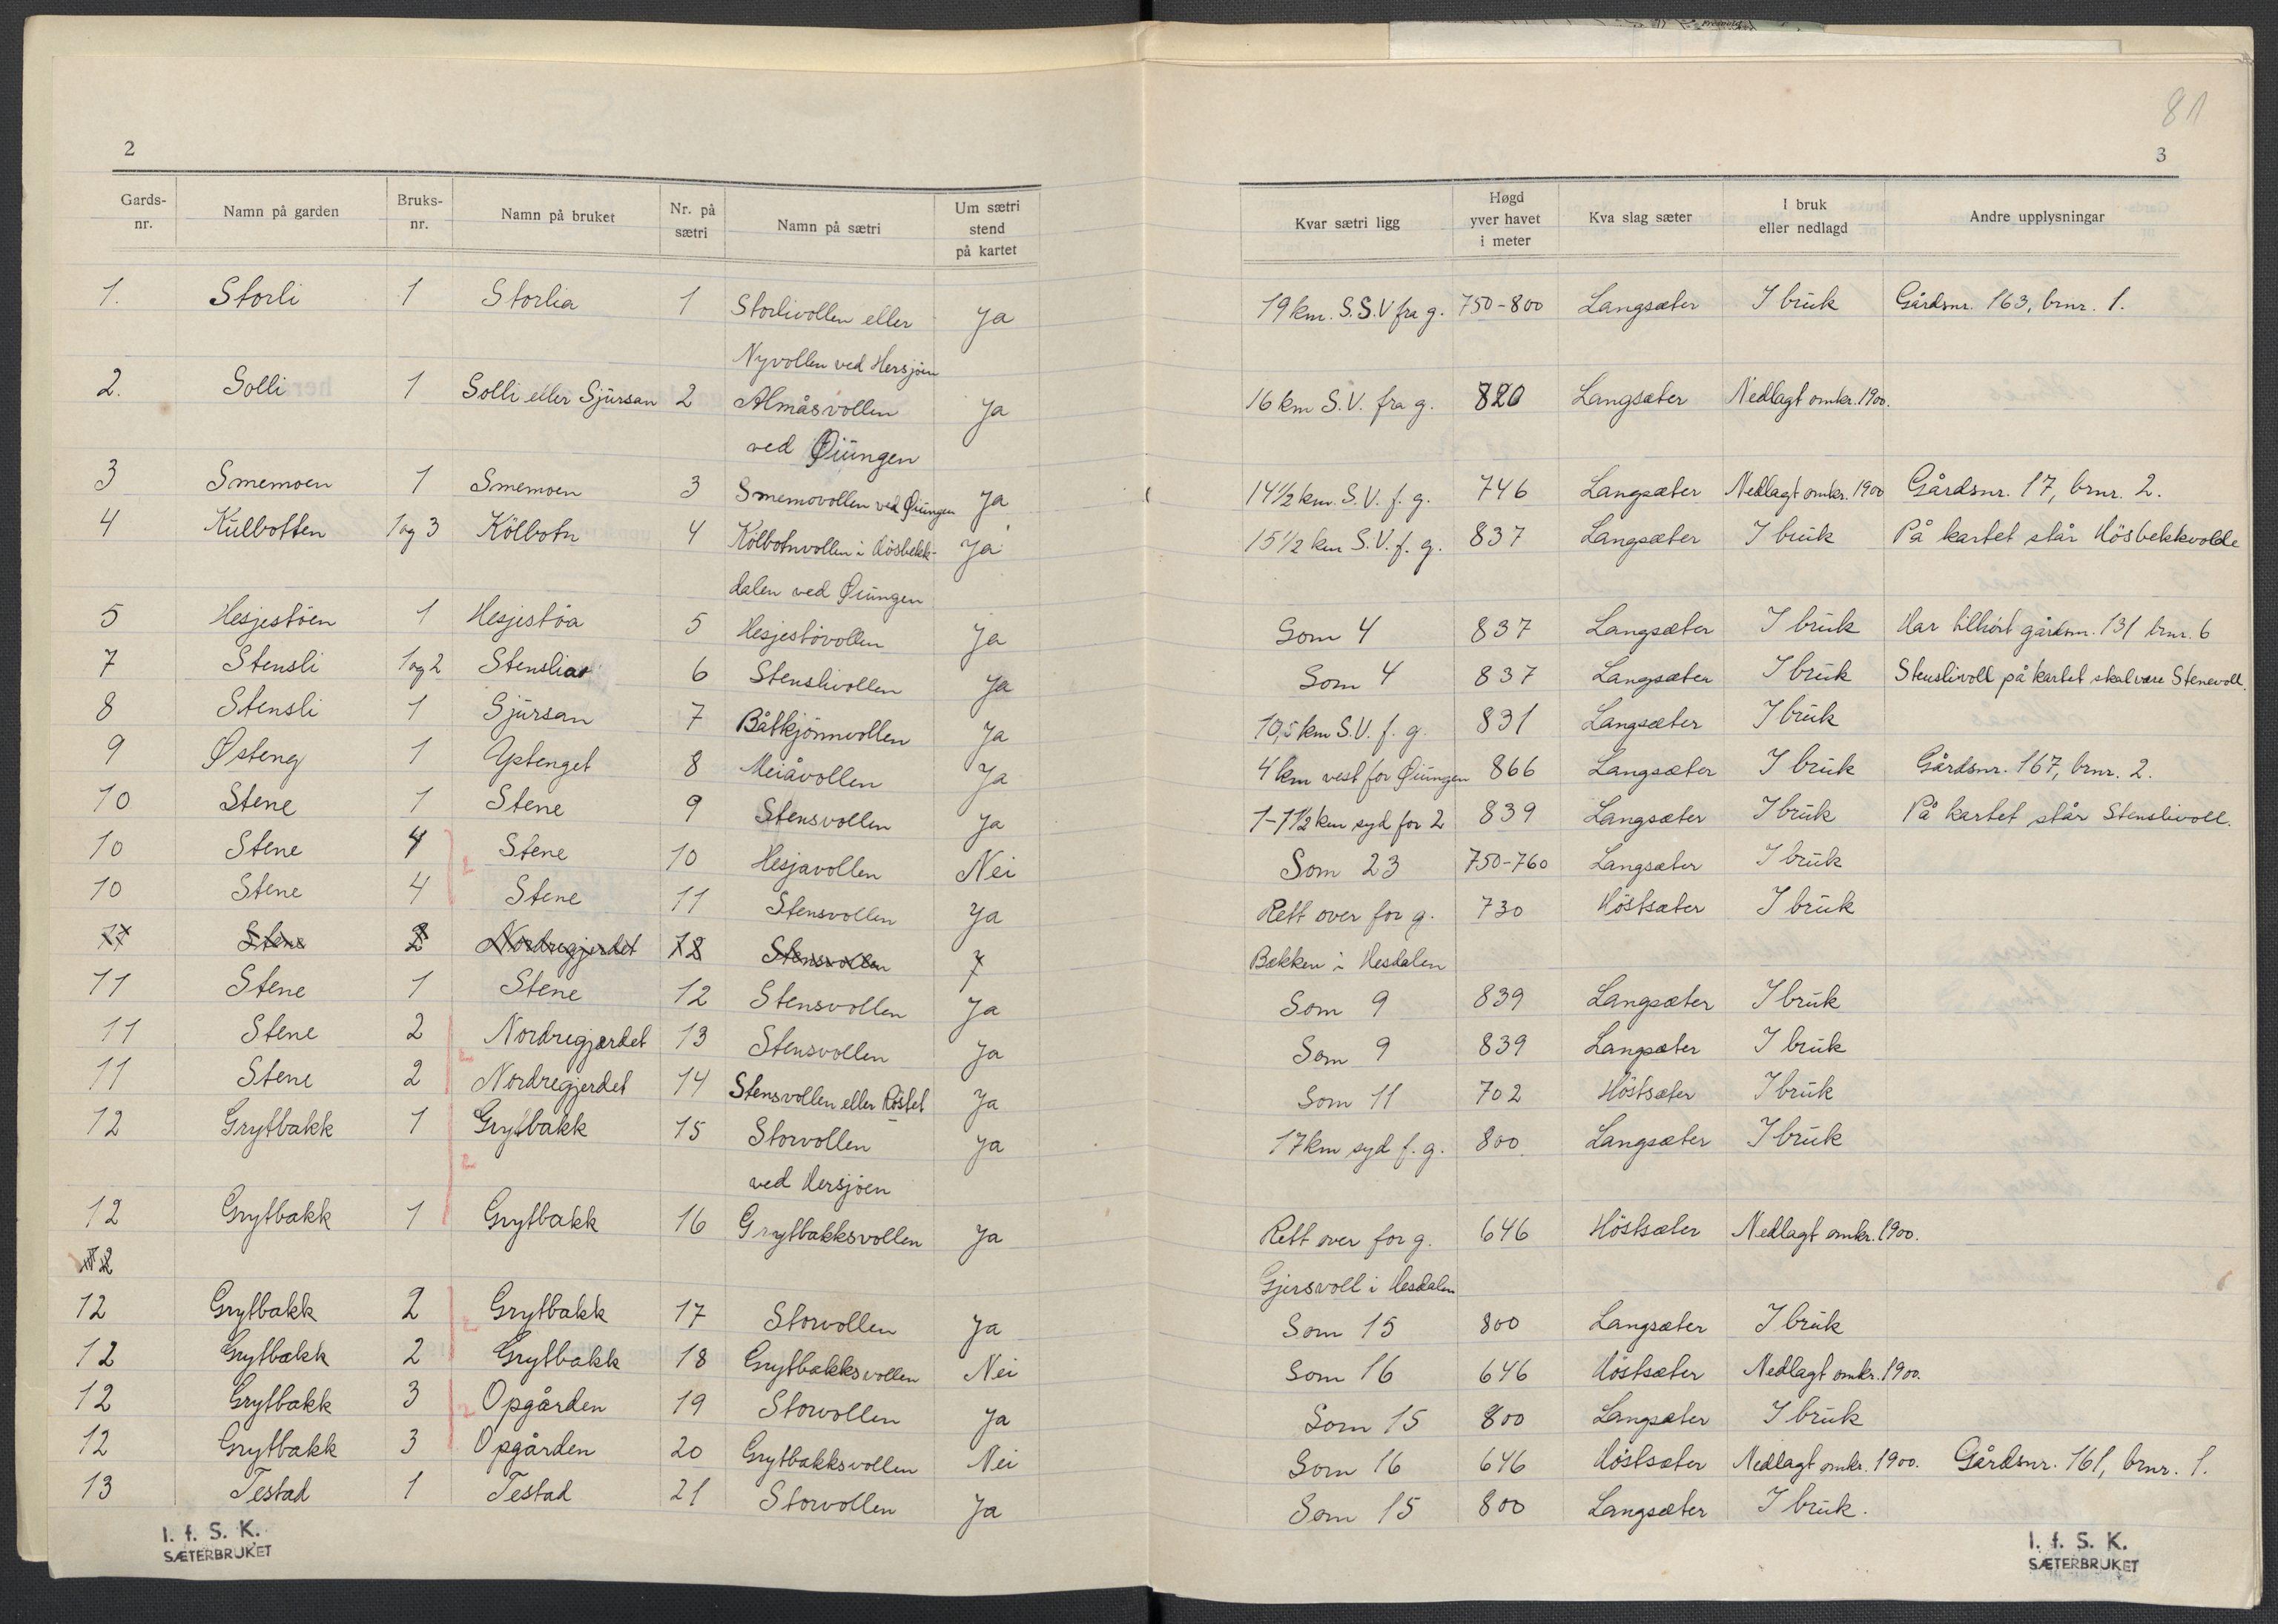 81
2
3
Gards-nr. Namn på garden Bruks-nr. Namn på bruket Nr. på sætri Namn på sætri Um sætri stend på kartet Kvar sætri ligg Høgd yver havet i meter Kva slag sæter I bruk eller nedlagd Andre upplysningar
1. Storli 1 Storlia 1 Storlivollen eller Ja 19 km. S.S.V fra g. 750-800 Langsæter I bruk Gårdsnr. 163, brnr. 1.
Nyvollen ved Hersjøen
2. Solli 1 Solli eller Sjursan 2 Almåsvollen Ja 16 km S.V. fra g. 820 Langsæter Nedlagt omkr. 1900.
ved Øiungen
3 Smemoen 1 Smemoen 3 Smemovollen ved Øiungen Ja 14 1/2 km. S.V. f. g. 746 Langsæter Nedlagt omkr. 1900 Gårdsnr. 17, brnr. 2.
4 Kulbotten 1 og 3 Kölbotn 4 Kölbotnvollen i Hösbekk- Ja 15 1/2 km S.V. f. g. 837 Langsæter I bruk På kartet står Hösbekkvolde
dalen ved Øiungen
5 Hesjestöen 1 Hesjestöa 5 Hesjestövollen Ja Som 4 837 Langsæter I bruk Har tilhört gårdsnr. 131 brnr. 6
7 Stensli 1 og 2 Stenslia 6 Stenslivollen Ja Som 4 837 Langsæter I bruk Stenslivoll på kartet skal være Stenevoll.
8 Stensli 1 Sjursan 7 Båtkjönnvollen Ja 10,5 km S.V. f. g. 831 Langsæter I bruk
9 Østeng 1 Ystenget 8 Meiåvollen Ja 4 km vest for Øiungen 866 Langsæter I bruk Gårdsnr. 167, brnr. 2.
10 Stene 1 Stene 9 Stensvollen Ja 1-1 1/2 km syd for 2 839 Langsæter I bruk På kartet står Stenslivoll.
10 Stene 4 Stene 10 Hesjavollen Nei Som 23 750-760 Langsæter I bruk
2
10 Stene 4 Stene 11 Stensvollen Ja Rett over for g. 730 Höstsæter I bruk
11 Stene 2 Nordregjerdet 12 Stensvollen Bekken i Hesdalen
11 Stene 1 Stene 12 Stensvollen Ja Som 9 839 Langsæter I bruk
11 Stene 2 Nordregjerdet 13 Stensvollen Ja Som 9 839 Langsæter I bruk
2
11 Stene 2 Nordregjerdet 14 Stensvollen eller Röstet Ja Som 11 702 Höstsæter I bruk
12 Grytbakk 1 Grytbakk 15 Storvollen Ja 17 km syd f. g. 800. Langsæter I bruk
2
ved Hersjöen
12 Grytbakk 1 Grytbakk 16 Grytbakksvollen Ja Rett over for g. 646 Höstsæter Nedlagt omkr. 1900.
12 Gjersvoll i Hesdalen
12 Grytbakk 2 Grytbakk 17 Storvollen Ja Som 15 800 Langsæter I bruk
2
12 Grytbakk 2 Grytbakk 18 Grytbakksvollen Nei Som 16 646 Höstsæter Nedlagt omkr. 1900.
12 Grytbakk 3 Opgården 19 Storvollen Ja Som 15 800 Langsæter I bruk
2
12 Grytbakk 3 Opgården 20 Grytbakksvollen Nei Som 16 646 Höstsæter Nedlagt omkr. 1900. Gårdsnr. 161, brnr. 1.
13 Testad 1 Testad 21 Storvollen Ja Som 15 800 Langsæter I bruk.
I. f. S. K.
SÆTERBRUKET
I. f. S. K.
SÆTERBRUKET